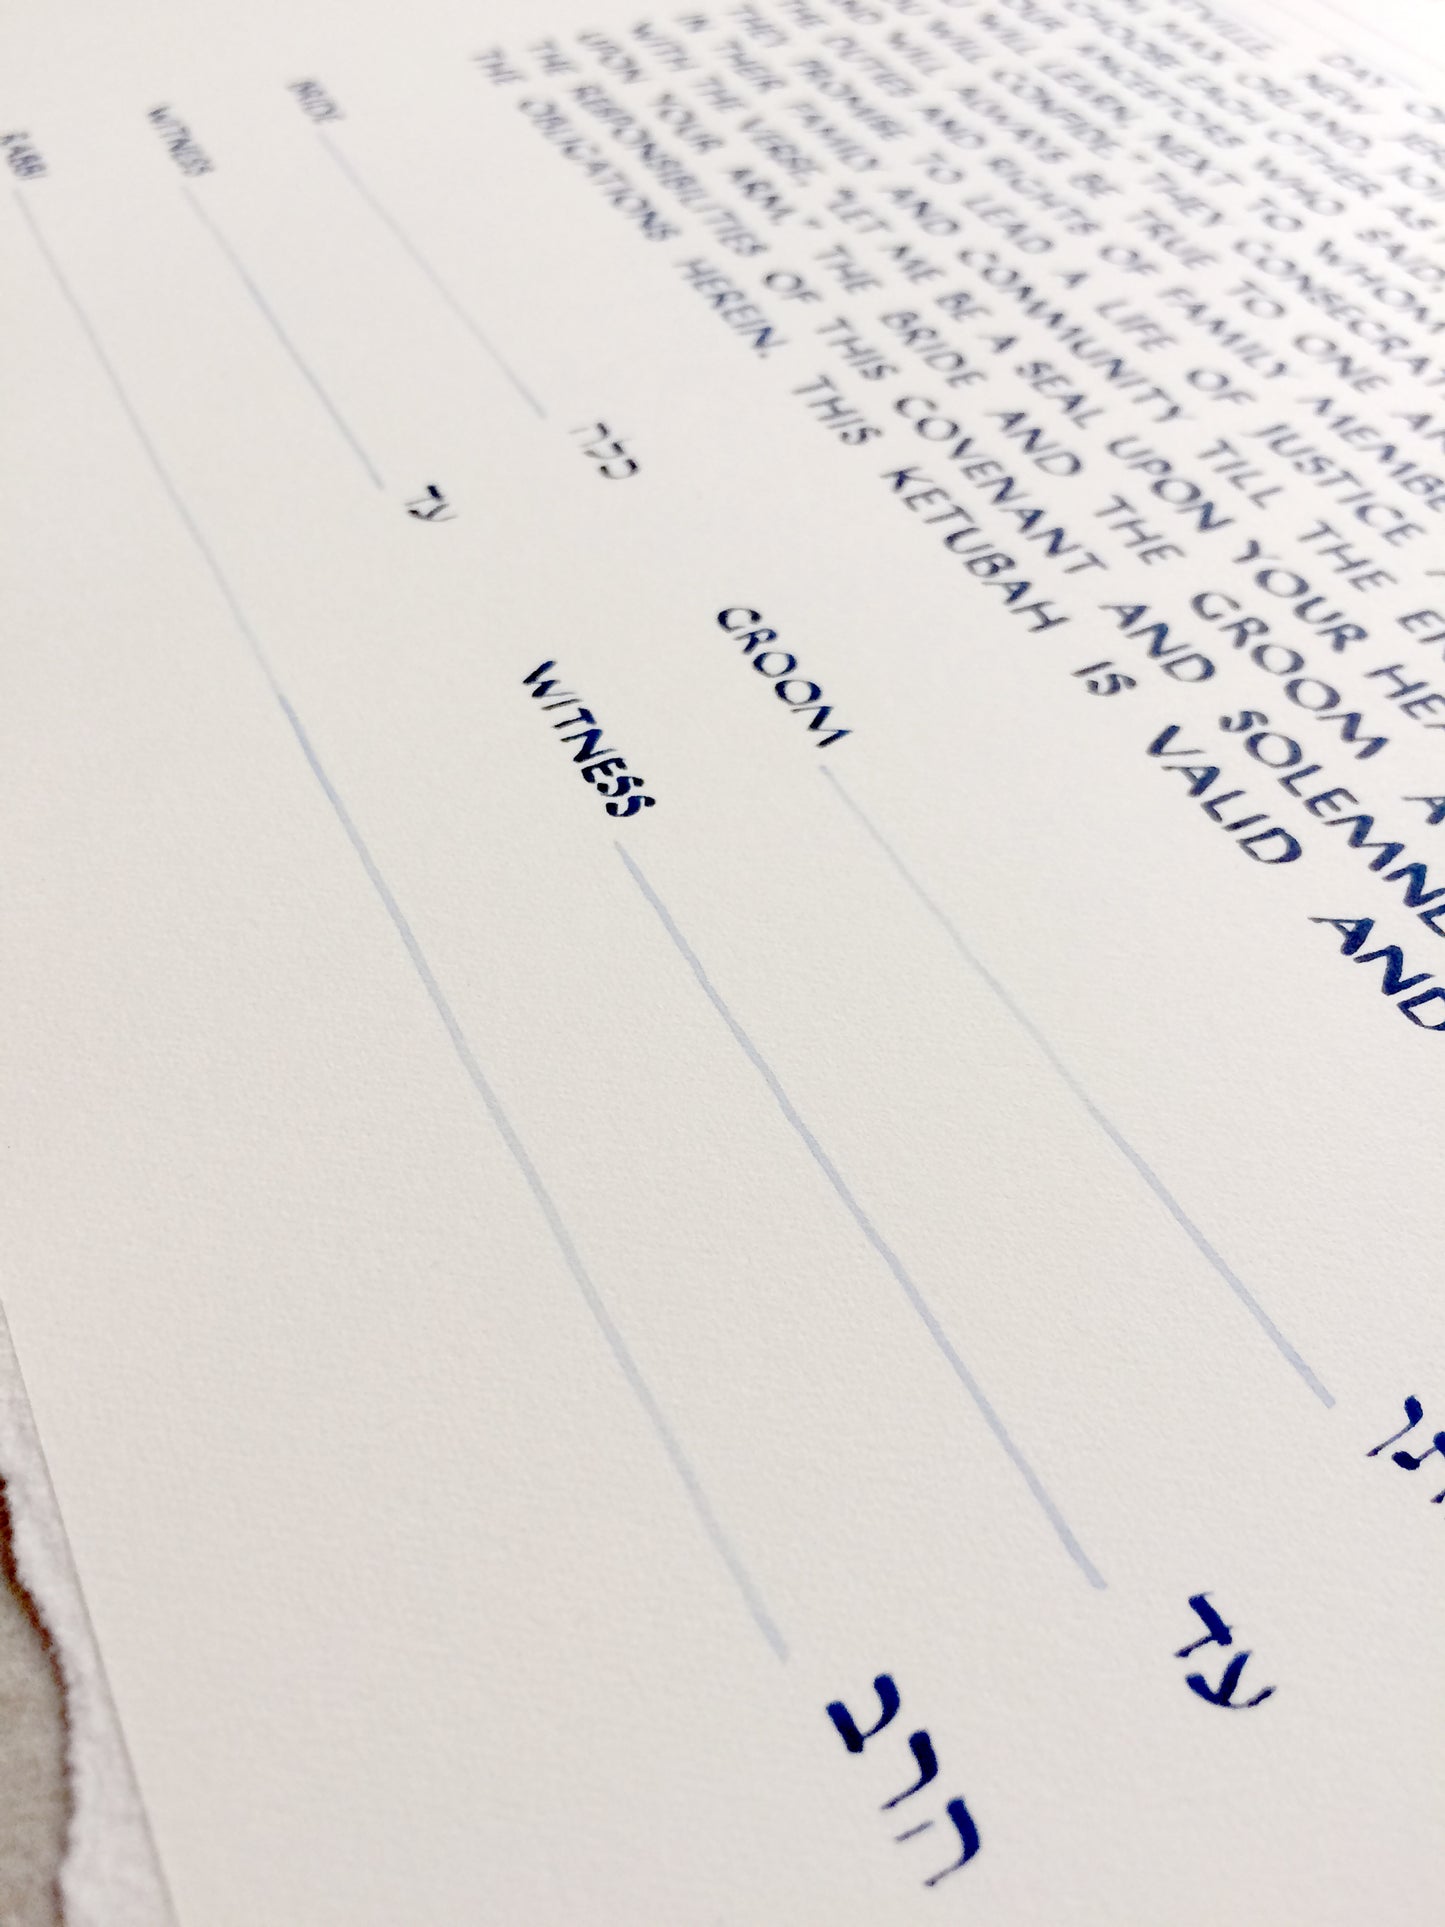 DAY O
NEW JERS
MAY ORLAND, JOI
CHOOSE EACH OTHER AS
OUR ANCESTORS WHO SAID,
WILL LEARN, NEXT TO WHOM
YOU WILL CONFIDE." THEY CONSECRAT
AND WILL ALWAYS BE TRUE TO ONE AN
THE DUTIES AND RIGHTS OF FAMILY MEMBE
THEY PROMISE TO LEAD A LIFE OF JUSTICE A
IN THEIR FAMILY AND COMMUNITY TILL THE EN
WITH THE VERSE, "LET ME BE A SEAL UPON YOUR HEA
UPON YOUR ARM," THE BRIDE AND THE GROOM A
THE RESPONSIBILITIES OF THIS COVENANT AND SOLEMNL
THE OBLIGATIONS HEREIN. THIS KETUBAH IS VALID AND
BRIDE כלה GROOM חתן
WITNESS עד WITNESS עד
RABBI הרב